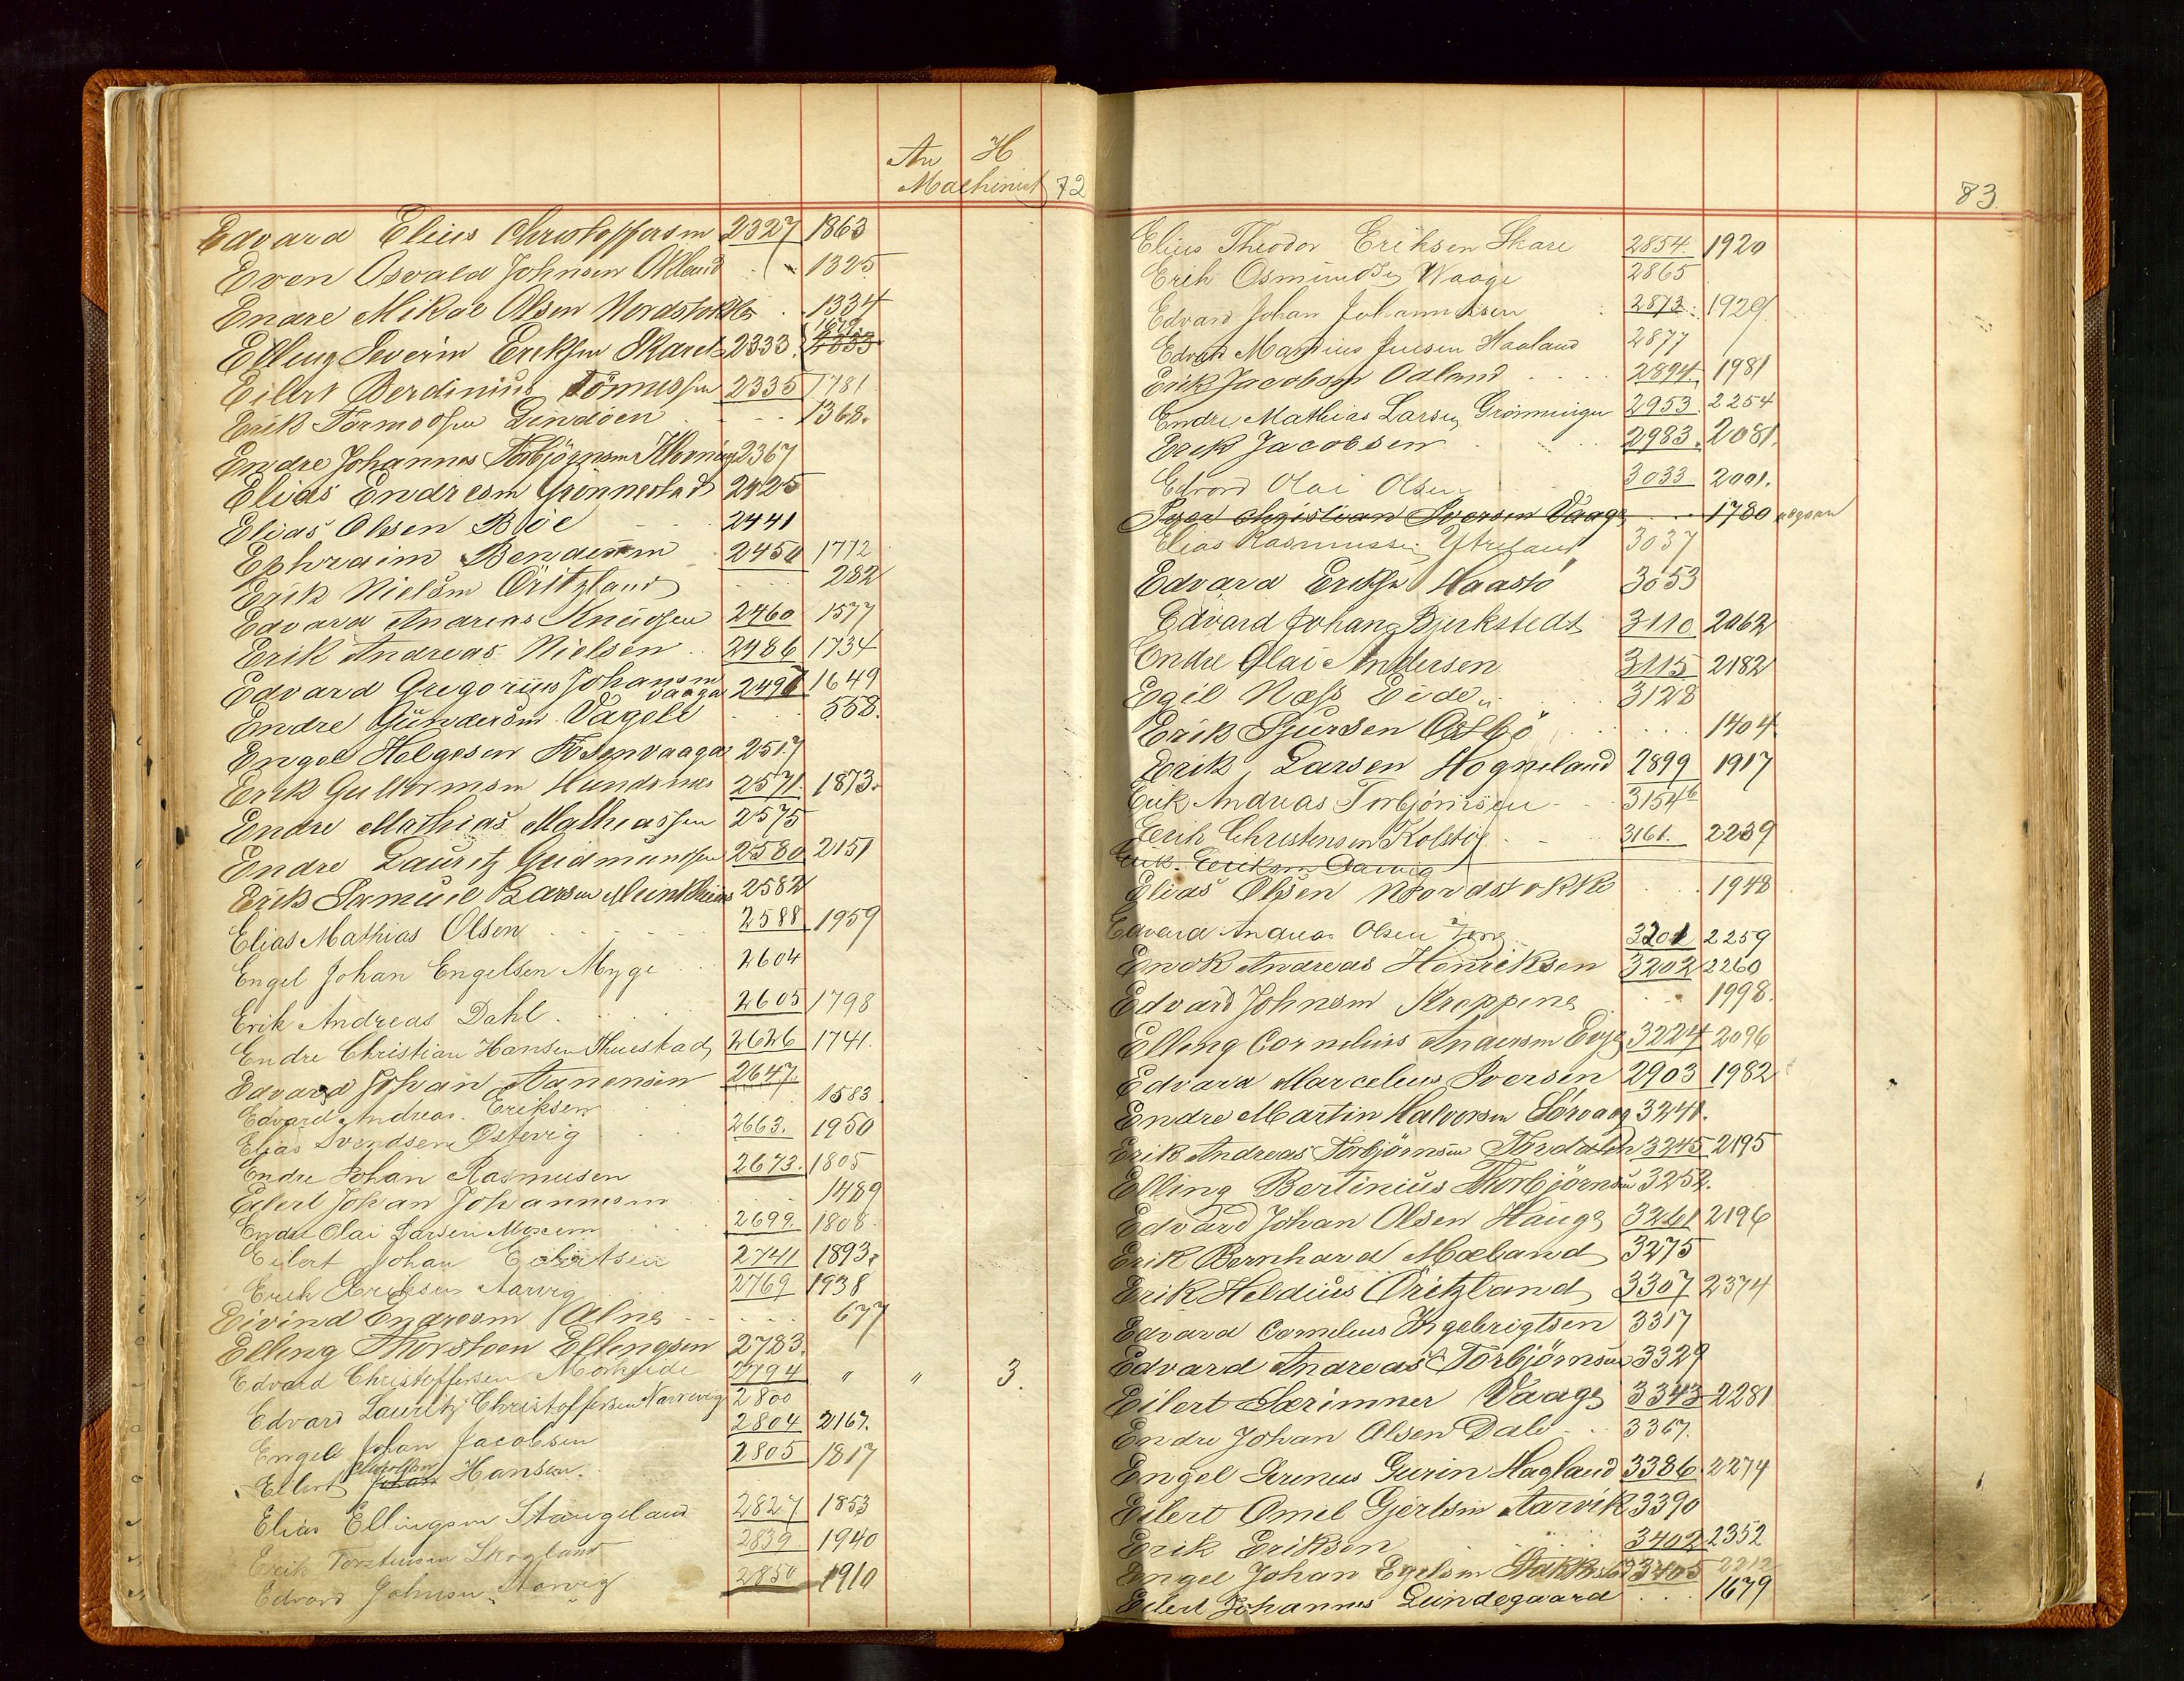 An H
Machinist 72
Edvard Elius Christoffersen 2327 1863
Even Osvald Johnsen Økland 1325
Endre Mikal Olsen Nordstokke 1334
Elling Severin Eriksen Skare 2333 1679
Eilert Berdinius Tönnessen 2335 1781
Erik Tormodsen Lindöen 1368.
Endre Johannes Torbjörnsen 2367
Elias Endresen Grönnestad 2425
Elias Olsen Böe 2441
Ephraim 2450 1772
Erik Nielsen Öritzland 282
Edvard Andreas Knudsen 2460 1577
Erik Andreas Nielsen 2486 1734
Edvard Gregorius Johansen Vaaga 1649
Endre Gundersen Vagele 558.
Engel Helgesen 2517
Erik Guttormsen Hundsnes 2571. 1873.
Endre Mathias Mathiassen 2575
Endre Lauritz Gudmundsen 2580 2151
Erik Samuel Larsen 2582
Elias Mathias Olsen 2588 1959
Engel Johan Engelsen Myge 2604
Erik Andreas Dahl 2605 1798
Endre Christian Hansen Thuestad 2626 1741.
Edvard Johan Aanensen 2647.
Edvard Andreas Eriksen 1583
Elias Svendsen Ostevig 2663. 1950
Endre Johan Rasmusen 2673. 1805
Eilert Johan Johannesen 1489
Endre Olai Larsen 2699 1808
Eilert Johan Eilertsen 2741 1893.
Erik Eriksen Aarvig 2769 1938
Eivind Endresen Alne 677
Elling Thorsteen Ellingsen 2783.
Edvard Christoffersen Mörkeide 2794 " " 3
Edvard Lauritz Christoffersen Narrevig 2800
Engel Johan Jacobsen 2804 2167.
Eilert Johan Hansen. 2805 1817
Elias Ellingsen Stangeland 2827 1853
Erik Torstensen Skogland 2839 1940
Edvard Johnsen Aarvig 2850 1910
83
Elius Theodor Eriksen Skare 2854 1920
Erik Osmundsen Waage 2865
Edvard Johan Johannessen 2873. 1929
Edvard Martius Jensen Haaland 2877
Erik Jacobsen Odland 2894. 1981
Endre Mathias Larsen Grönningen 2953. 2254
Erik Jacobsen 2983. 2081.
Edvard Olai Olsen 3033. 2001.
Iver Christian Iversen Vaage 1780
Elias Rasmussen Ytreland 3037
Edvard Eriksen Haastö 3053
Edvard Johan Bjerkstedt 3110 2062
Endre Olai Andersen 3115 2182
Egil Næss Eide 3128
Erik Sjursen Østbö 1404
Erik Larsen Hogneland 2899 1917
Erik Andreas Torbjörnsen 3154 b
Erik Christensen Kolstö 3161. 2239
Erik Eriksen Aarvig
Elias Olsen Nordstokke 1948
Edvard Andreas Olsen 3201 2259
Enok Andreas Henriksen 3202 2260
Edvard Johnsen Kroppene 1998.
Elling Cornelius Andersen Evje 3224 2096
Edvard Marcelius Iversen 2903 1982
Endre Martin Halvorsen Sörvaag 3241.
Erik Andreas Torbjörnsen Tordalen 3245 2195
Elling Bertinius Thorbjörnsen 3252.
Edvard Johan Olsen Hauge 3261 2196
Erik Bernhard Mæland 3275
Erik Heldius Öritzland 3307 2374
Edvard Cornelius Ingebrigtsen 3317
Edvard Andreas Torbjörnsen 3329
Eilert Særimner Vaage 3343 2281
Endre Johan Olsen Dale 3367.
Engel Serenus Gurin Hagland 3386. 2274
Eilert Omel Gjertsen Aarvik 3390
Erik Eriksen 3402 2352
Engel Johan Egelsen Stakkestad 3405 2212
Eilert Johannes Lindegaard 1679